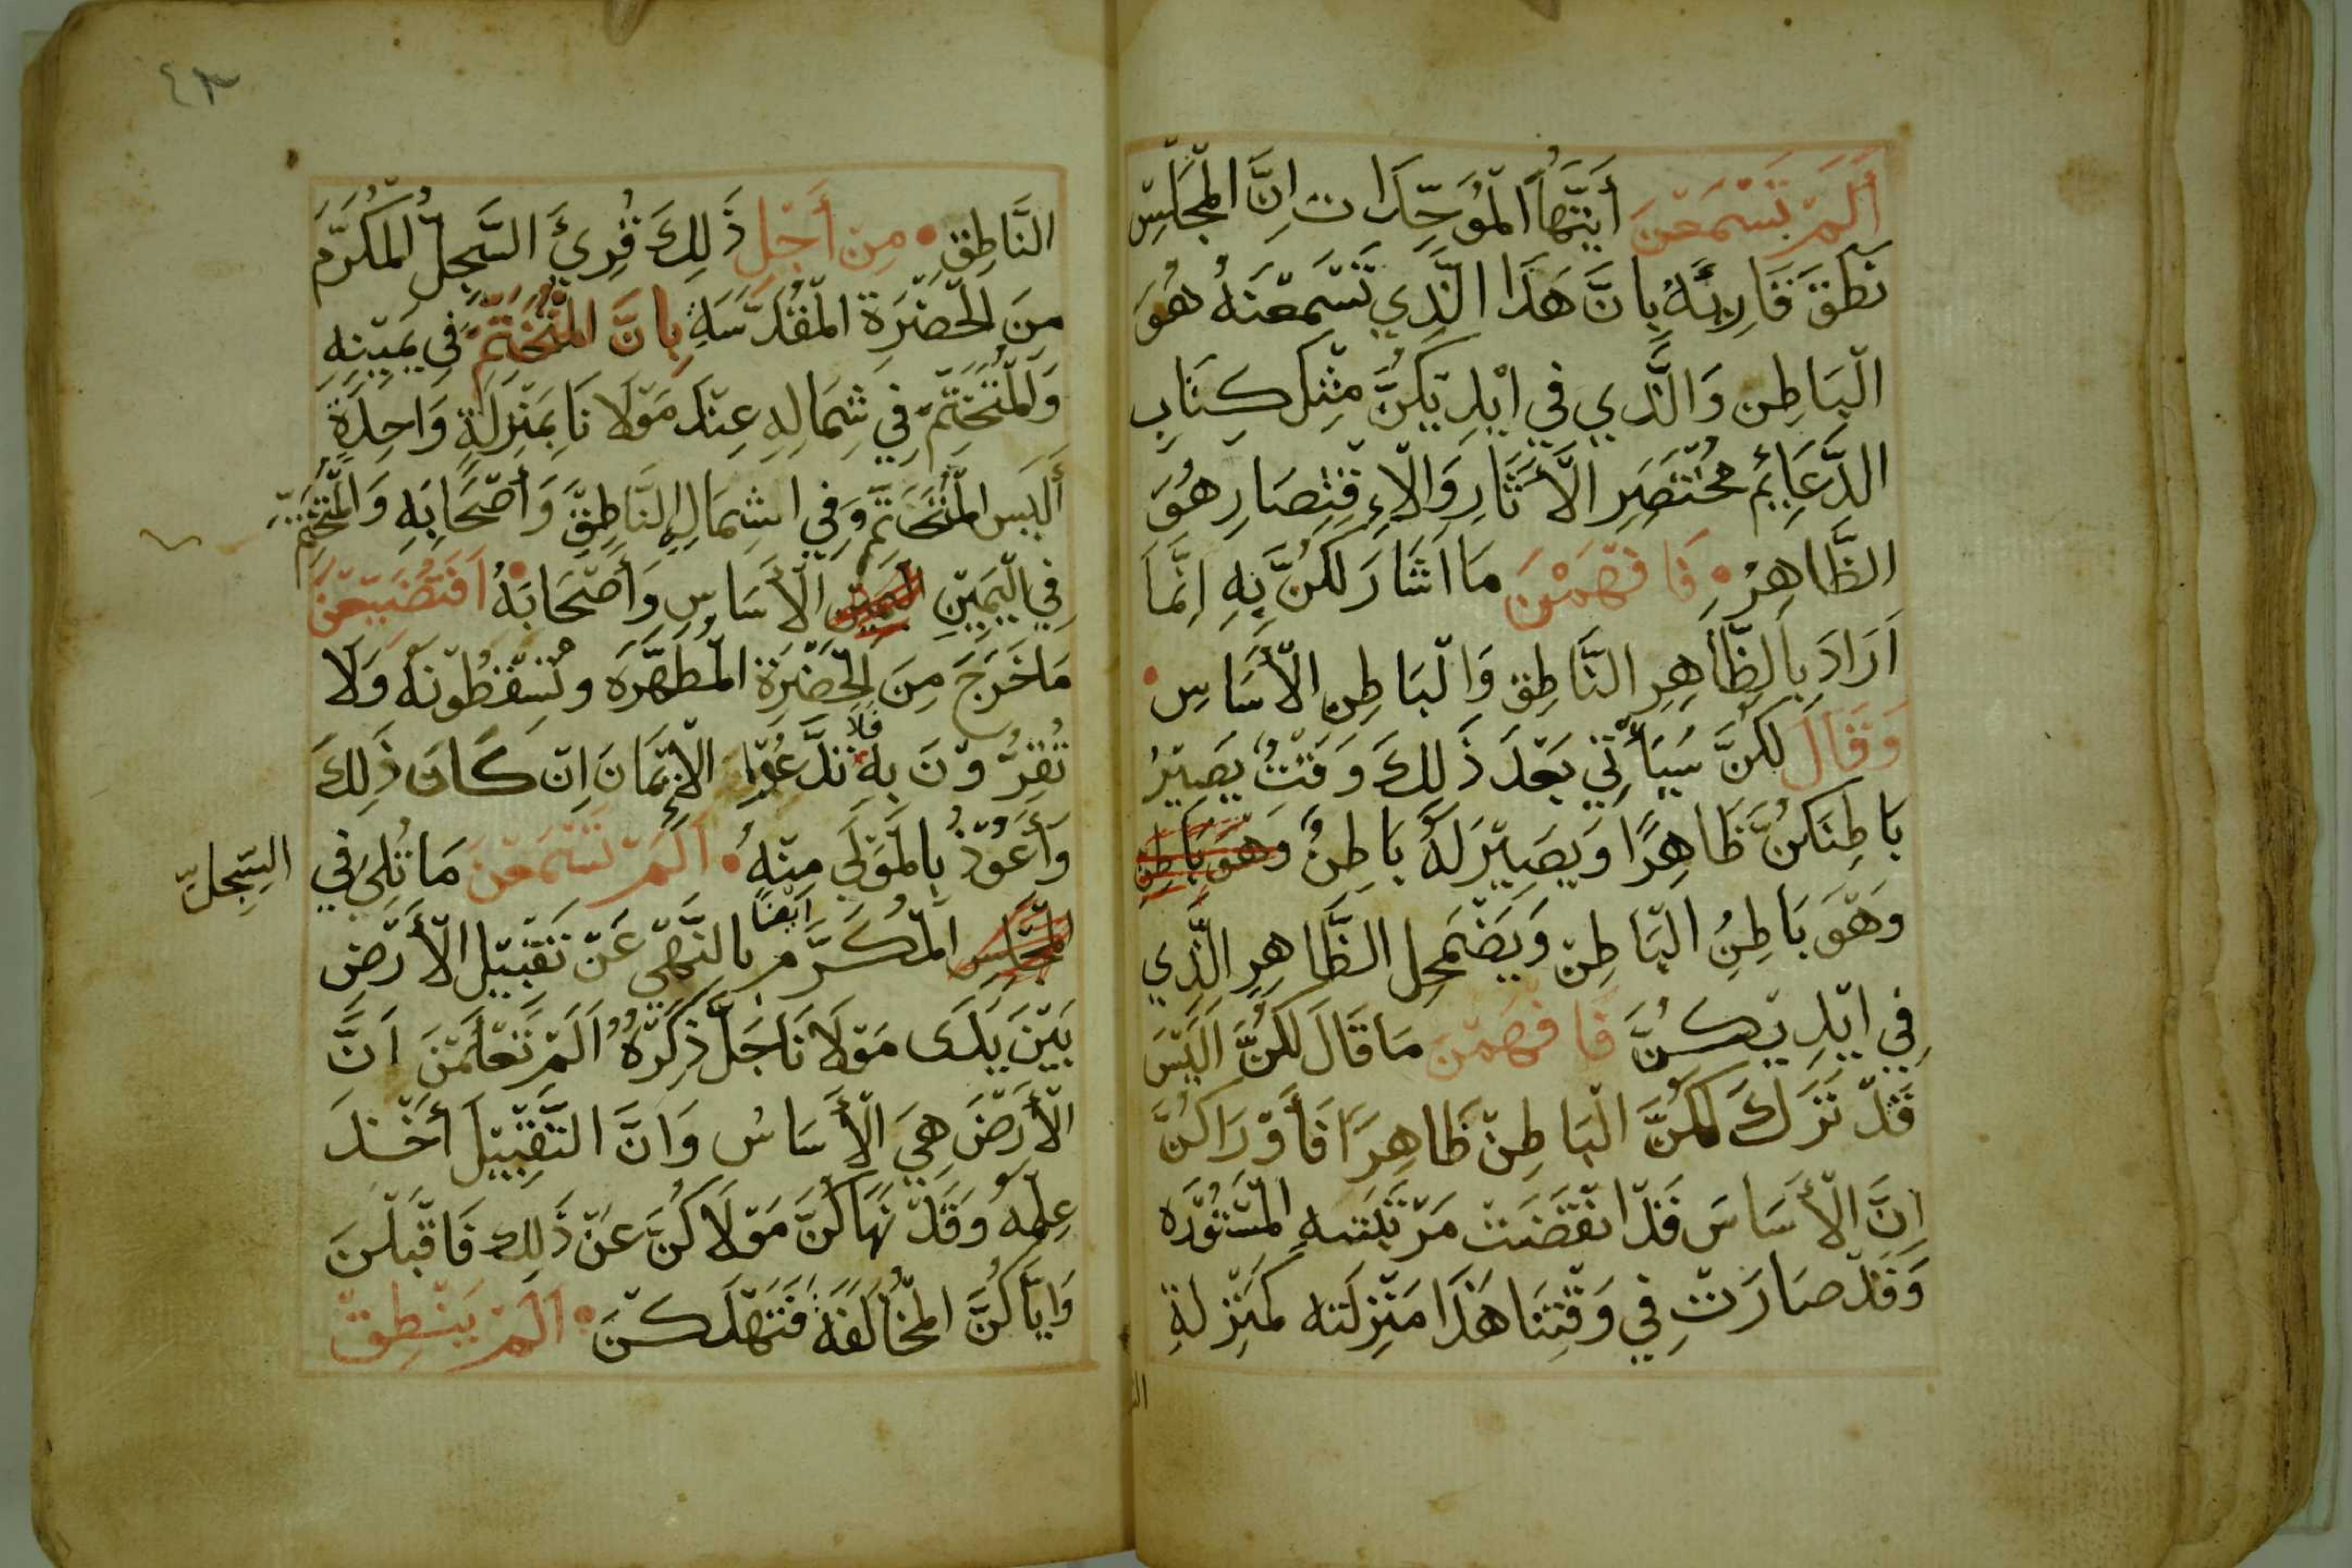 أَلَمْ تَسْمَعْنَ أَيَّتُهَا الْمُوَحِّدَات اِنَّ الْمَجْلِسْ
نَطَقَ قَارِئهُ بِانَّ هَذَا الَّذِي تَسْمَعْنَهُ هُوَ
الْبَاطِن وَالَّذِي فِي اَيْدِيَكُنَّ مِثْل كِتَابِ
الدَّعَائِمُ مُخْتَصَرِ الْأَثَارِ وَالْإِقْتِصَارِ هُوَ
الظَّاهِرُ فَافْهَمْنَ مَا اَشَارَ لَكُنَّ بِهِ اِنَّمَا
اَرَادَ بِالظَّاهِرِ النَّاطِق وَالْبَاطِنِ الْأَسَاسِ
وَقَالَ لَكُنَّ سَيَأْتِي بَعْدَ ذَلِكَ وَقْتٌ يَصِيْرُ
بَاطِنَكُنَّ ظَاهِرًا وَيَصِيْرَ لَهُ بَاطِنٌ وَهوَ بَاطِن
وَهْوَ بَاطِنُ الْبَاطِنْ وَيَضْمَحِل الظَّاهِرِ الَّذِي
فِي اَيْدِيْكُنَّ فَافْهَمْنَ مَا قَالَ لَكُنَّ اَلَيْسَ
قَدْ تَرَكَ لَكُنَّ الْبَاطِنْ ظَاهِرَاً فَأَوْرَاكُنَّ
اِنَّ الْأَسَاسَ قَدْ انْقَضَتْ مَرْتَبَتهِ الْمَسْتُوْرَه
وَقَدْ صَارَتْ فِي وَقْتِنَا هَذَا مَنْزِلَته كَمَنْزِلةِ
الن
٤٣
النَّاطِقِ مِن أَجْلِ ذَلِكَ قُرِئَ السِّجِلُّ الْمُكَرَّمُ
مِنَ الْحَضْرَةِ الْمُقَدَّسَةِ بِانَّ الْمُتَخَتِّمْ فِي يَمِيْنِهِ
وَالْمُتَخَتِّمْ فِي شِمَالِهِ عِنْدَ مَوْلَانَا بِمَنْزِلَةٍ وَاحِدَةٍ
أَلَيْسَ الْمُتَخَتِّمْ فِي الشِمَالِ النَّاطِقْ وَأَصْحَابَهِ وَالْمُتَخَتِّمْ
فِي الْيَمِيْنِ اليمين الْأَسَاسِ وَأَصْحَابَهُ اَفَتُضَيِّعْنَ
مَا خَرَجَ مِنَ الْحَضْرَة الْمُطَهَّرَه وتُسْقِطُونَهُ وَلَا
تُقِرُّوْنَ بِهِ فَلَا تَدَّعُوا الْإِيْمَانَ اِنْ كَانَ ذَلِكَ
وَأَعُوْذُ بِالْمَوْلَى مِنْهُ اَلَمْ تَسْمَعْنَ مَا تُلِيَ فِي السِّجِلِّ
الْمَجْلِس الْمُكَرَّمِ اَيْضًا بِالنَّهْيِ عَنْ تَقْبِيْلِ الْأَرْضِ
بَيْنَ يَدَى مَوْلَانَا جَلَّ ذِكْرُهُ اَلَمْ تَعْلَمْنَ اَنَّ
الْأَرْضَ هِيَ الْأَسَاسُ وَانَّ التَّقْبِيْلَ أَخْذ
عِلْمهُ وَقَدْ نَهَاكُنَّ مَوْلَاكُنَّ عَنْ ذَلِك فَاقْبَلْنَ
وَاِيَّاكُنَّ الْمُخَالَفَةَ فَتَهْلَكْنَ اَلَمْ يَنْطِقْ